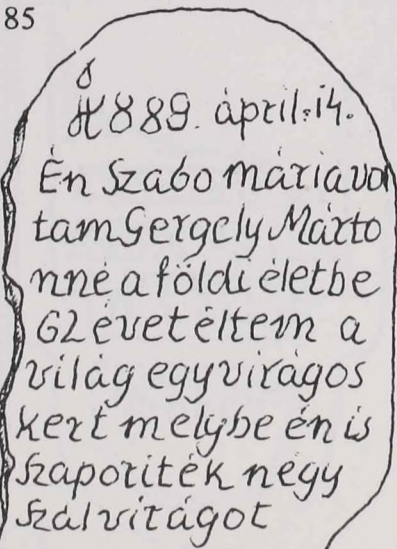 85
1889. ápril. 14.
Én Szabo máriavol
tam Gergely Márto
nné a földi életbe
62 évet éltem a
világ egy virágos
kert melybe én is
szaporiték negy
szál virágot